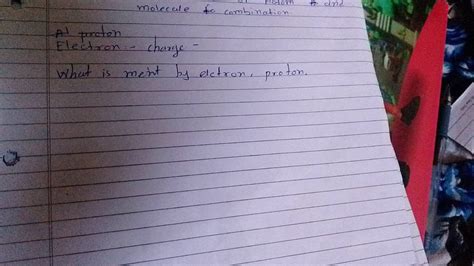 of Atom & and
molecule & combination
A) proton
Electron :- charge -
What is ment by elctron, proton.